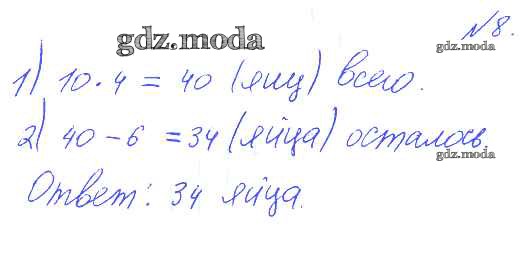 №8.
gdz.moda
1) 10·4 = 40 (яиц) всего.
2) 40 - 6 = 34 (яйца) осталось.
gdz.moda
Ответ: 34 яйца.
gdz.moda